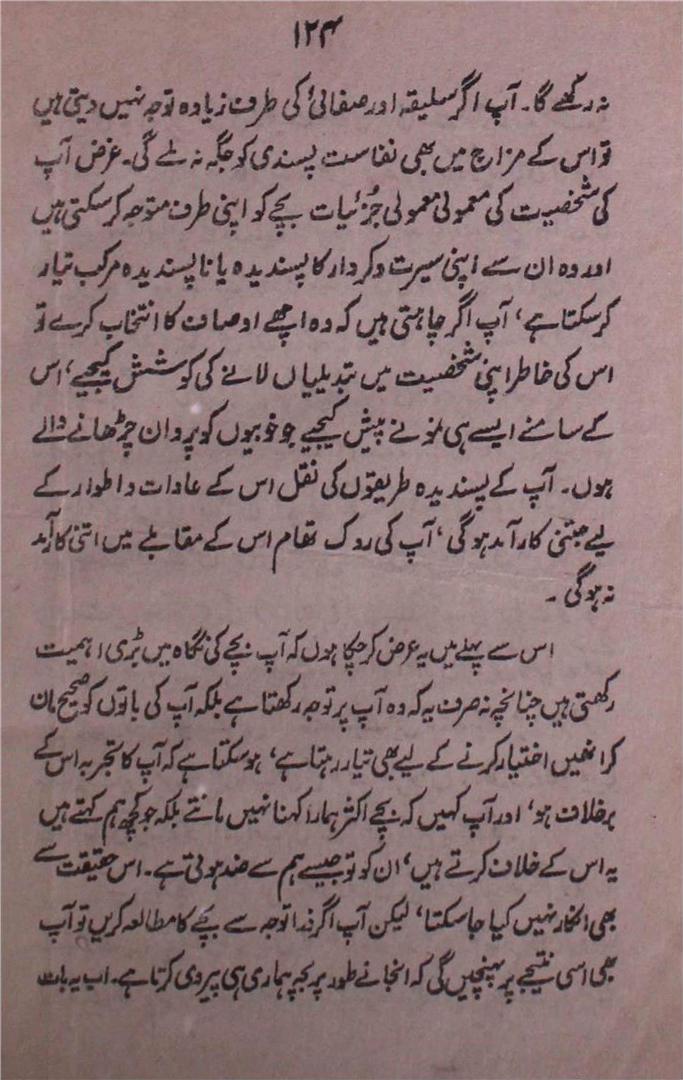 ۱۲۴
نہ رکھے گا۔ آپ اگر سلیقہ اور صفائی کی طرف زیادہ توجہ نہیں دیتی ہیں
تو اس کے مزاج میں بھی نفاست پسندی کو جگہ نہ ملے گی۔ غرض آپ
کی شخصیت کی معمولی معمولی جُزئیات بچے کو اپنی طرف متوجہ کر سکتی ہیں
اور وہ ان سے اپنی سیرت و کردار کا پسندیدہ یا ناپسندیدہ مرکب تیار
کر سکتا ہے، آپ اگر چاہتی ہیں کہ وہ اچھے اوصاف کا انتخاب کرے تو
اس کی خاطر اپنی شخصیت میں تبدیلیاں لانے کی کوشش کیجیے، اس
کے سامنے ایسے ہی نمونے پیش کیجیے جو خوبیوں کو پروان چڑھانے والے
ہوں۔ آپ کے پسندیدہ طریقوں کی نقل اس کے عادات و اطوار کے
لیے جتنی کارآمد ہوگی، آپ کی روک تھام اس کے مقابلے میں اتنی کارآمد
نہ ہوگی ۔
اس سے پہلے میں یہ عرض کر چکا ہوں کہ آپ بچے کی نگاہ میں بڑی اہمیت
رکھتی ہیں چنانچہ نہ صرف یہ کہ وہ آپ پر توجہ رکھتا ہے بلکہ آپ کی باتوں کو صحیح مان
کر انھیں اختیار کرنے کے لیے بھی تیار رہتا ہے، ہو سکتا ہے کہ آپ کا تجربہ اس کے
برخلاف ہو، اور آپ کہیں کہ بچے اکثر ہمارا کہنا نہیں مانتے بلکہ جو کچھ ہم کہتے ہیں
یہ اس کے خلاف کرتے ہیں، ان کو تو جیسے ہم سے ضد ہوتی ہے۔ اس حقیقت سے
بھی انکار نہیں کیا جا سکتا، لیکن آپ اگر ذرا توجہ سے بچے کا مطالعہ کریں تو آپ
بھی اسی نتیجے پر پہنچیں گی کہ انجانے طور پر بچہ ہماری ہی پیروی کرتا ہے۔ اب یہ بات